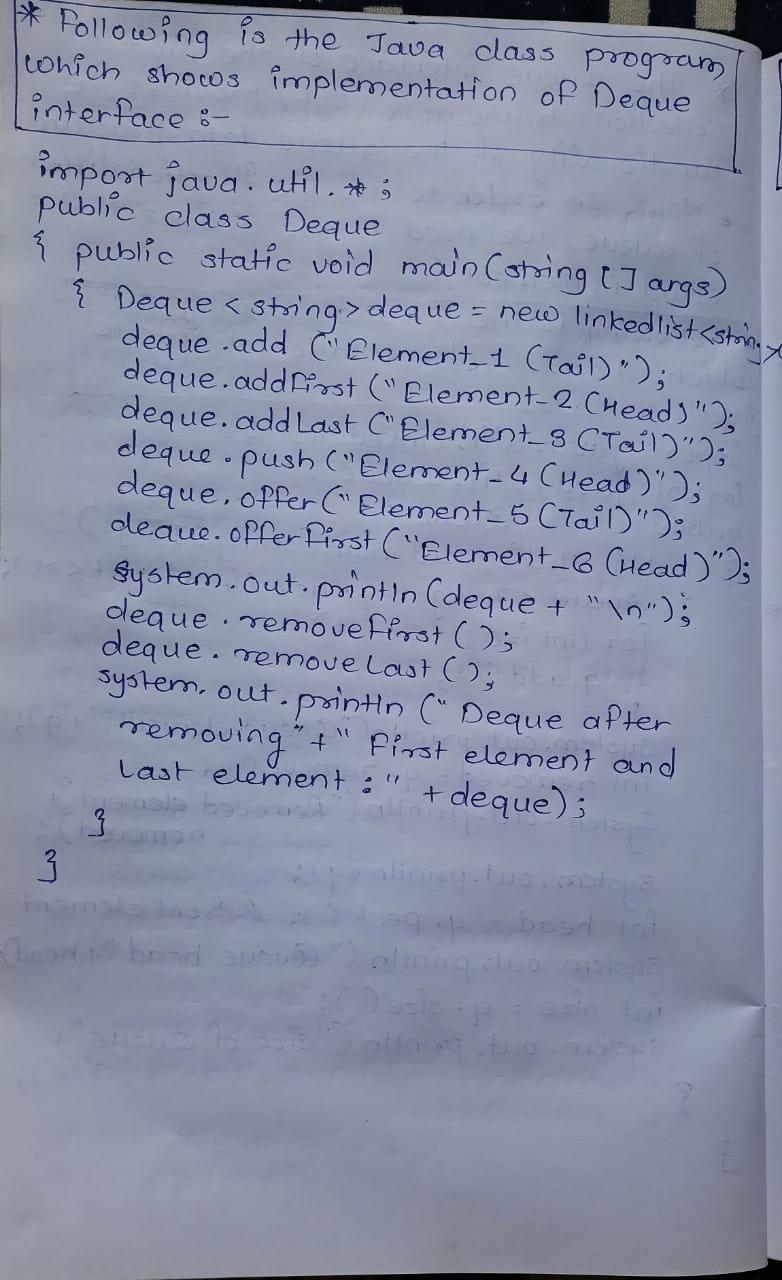 * Following is the Java class program
which shows implementation of Deque
interface :-
import java.util.*;
public class Deque
{ public static void main(string [] args)
{ Deque <string> deque = new linkedlist<string>
deque.add ("Element_1 (Tail)");
deque.addFirst ("Element_2 (Head)");
deque.addLast ("Element_3 (Tail)");
deque.push ("Element_4 (Head)");
deque.offer ("Element_5 (Tail)");
deque.offerFirst ("Element_6 (Head)");
System.out.println (deque + "\n");
deque.removeFirst ();
deque.removeLast ();
system.out.println (" Deque after
removing" + " First element and
Last element :" + deque);
}
}